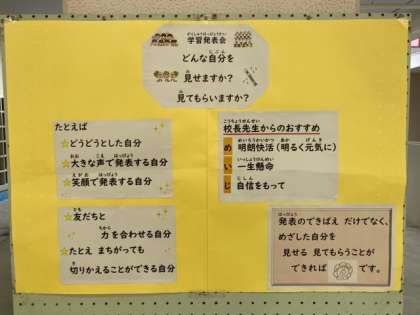 学習発表会
どんな自分を
見せますか？
見てもらいますか？
たとえば
☆どうどうとした自分
☆大きな声で発表する自分
☆笑顔で発表する自分
☆友だちと
力を合わせる自分
☆たとえ まちがっても
切りかえることができる自分
校長先生からのおすすめ
め 明朗快活（明るく元気に）
い 一生懸命
じ 自信をもって
発表のできばえ だけでなく、
めざした自分を
見せる 見てもらうことが
できれば です。